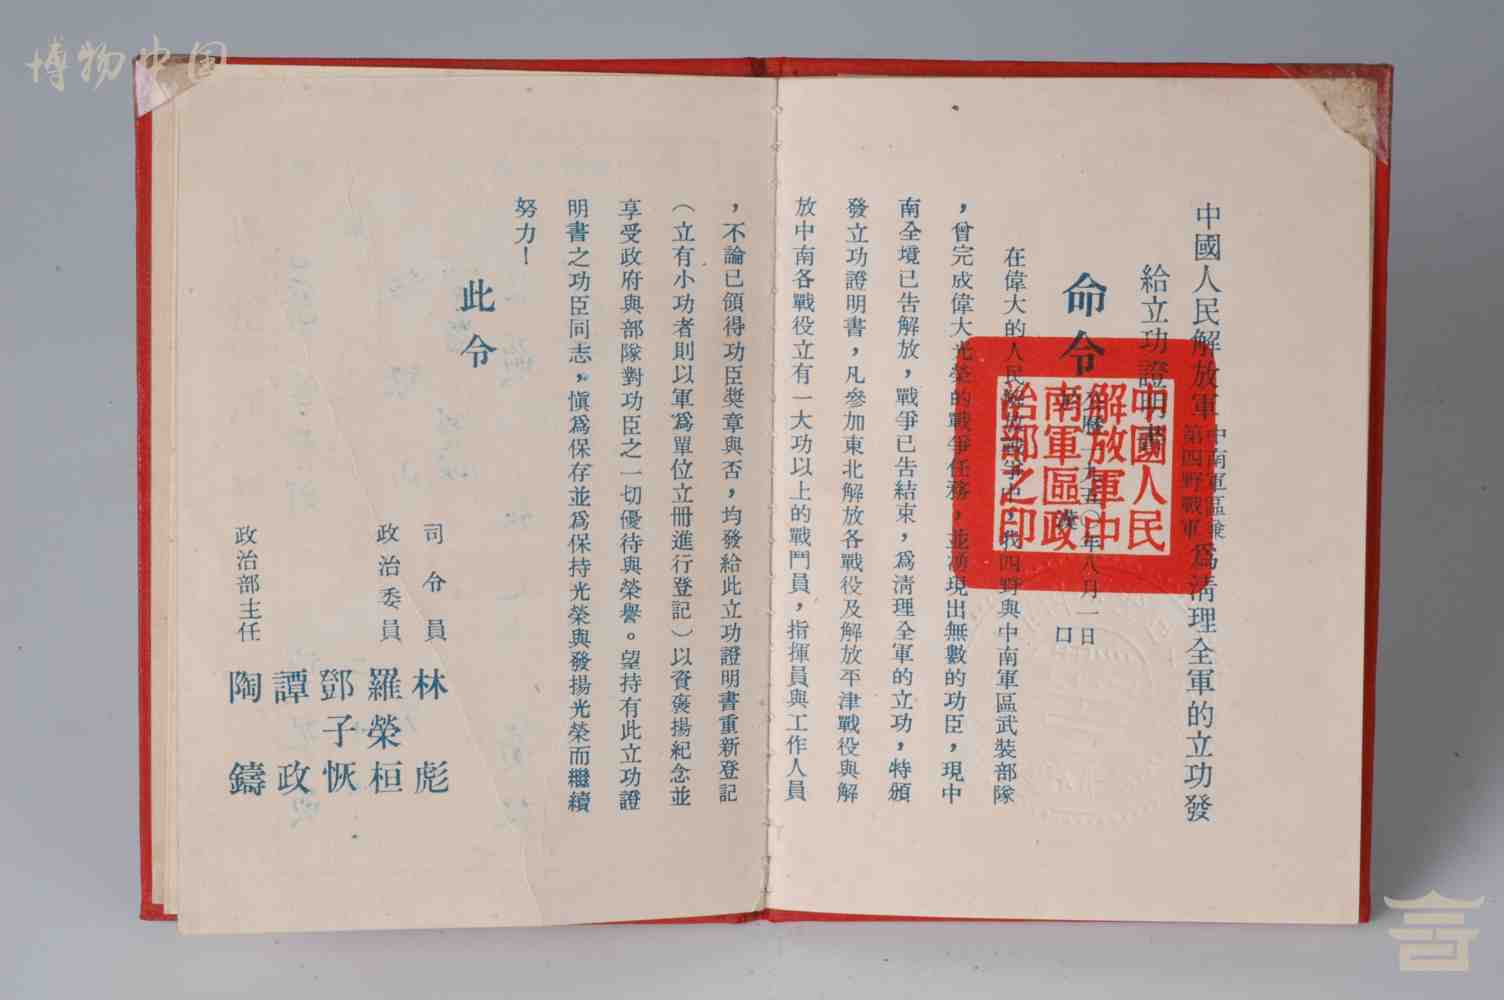 博物中国
中國人民解放軍中南軍區兼第四野戰軍為清理全軍的立功發
給立功證明書
命令
公曆一九五〇年八月一日
於 漢 口
在偉大的人民解放戰爭中，我四野與中南軍區武裝部隊
，曾完成偉大光榮的戰爭任務，並湧現出無數的功臣，現中
南全境已告解放，戰爭已告結束，為清理全軍的立功，特頒
發立功證明書，凡參加東北解放各戰役及解放平津戰役與解
放中南各戰役立有一大功以上的戰鬥員，指揮員與工作人員
，不論已領得功臣獎章與否，均發給此立功證明書重新登記
（立有小功者則以軍為單位立冊進行登記）以資褒揚紀念並
享受政府與部隊對功臣之一切優待與榮譽。望持有此立功證
明書之功臣同志，慎為保存並為保持光榮與發揚光榮而繼續
努力！
此令
司令員 林彪
政治委員 羅榮桓
鄧子恢
譚政
政治部主任 陶鑄
中國人民
解放軍中
南軍區政
治部之印